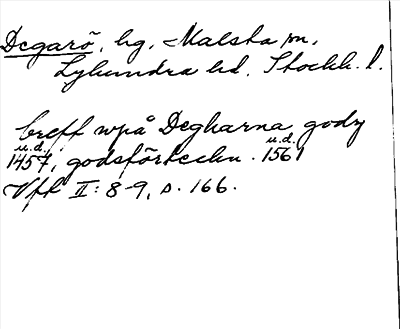 Degarö, hg, Malsta sn,
Lyhundra hd. Stockh. l.
breff wpå Degharna godz
u.d. u.d.
1457, godsförteckn. 1561
Vfk II: 8-9, s. 166.